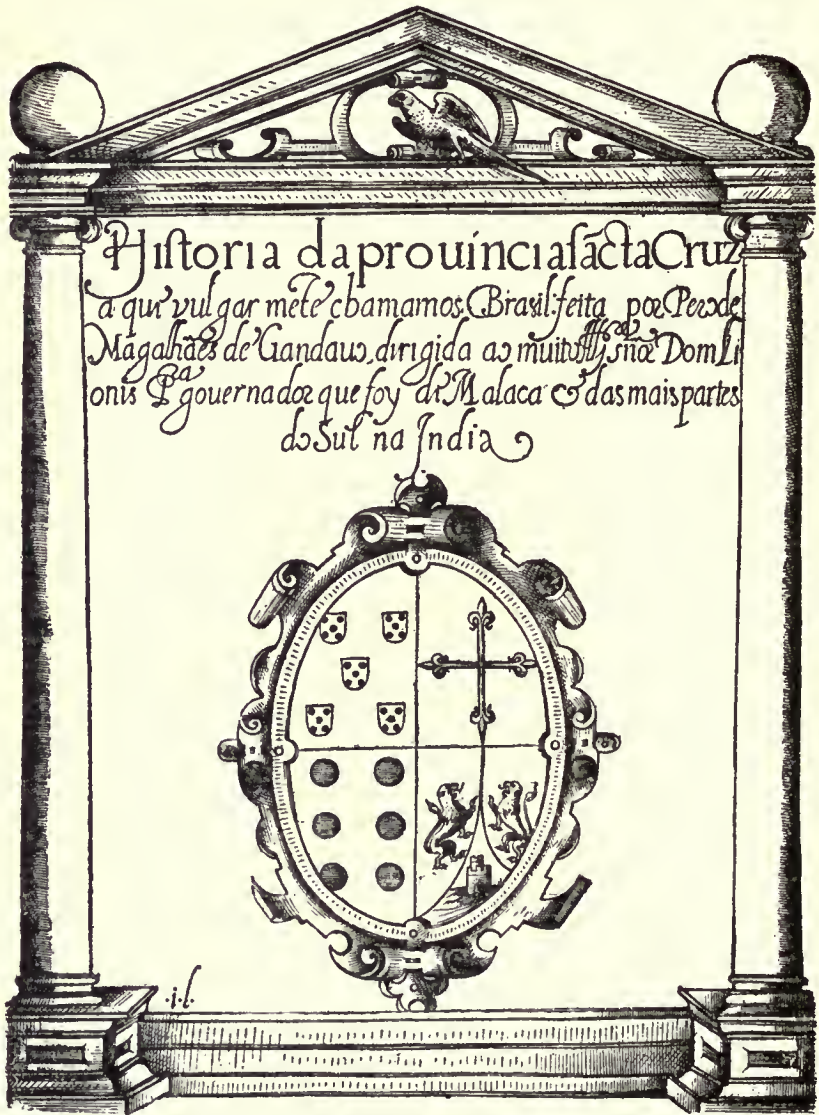 Hiſtoria da prouincia ſãcta Cruz
a qui vulgar mẽte chamamos Braſil: feita por Pero de
Magalhães de Gandauo, dirigida ao muito Illsͬᵉ snõr Dom Li
onis Pᵃ gouernador que foy de Malaca & das mais partes
do Sul na India
.i.l.